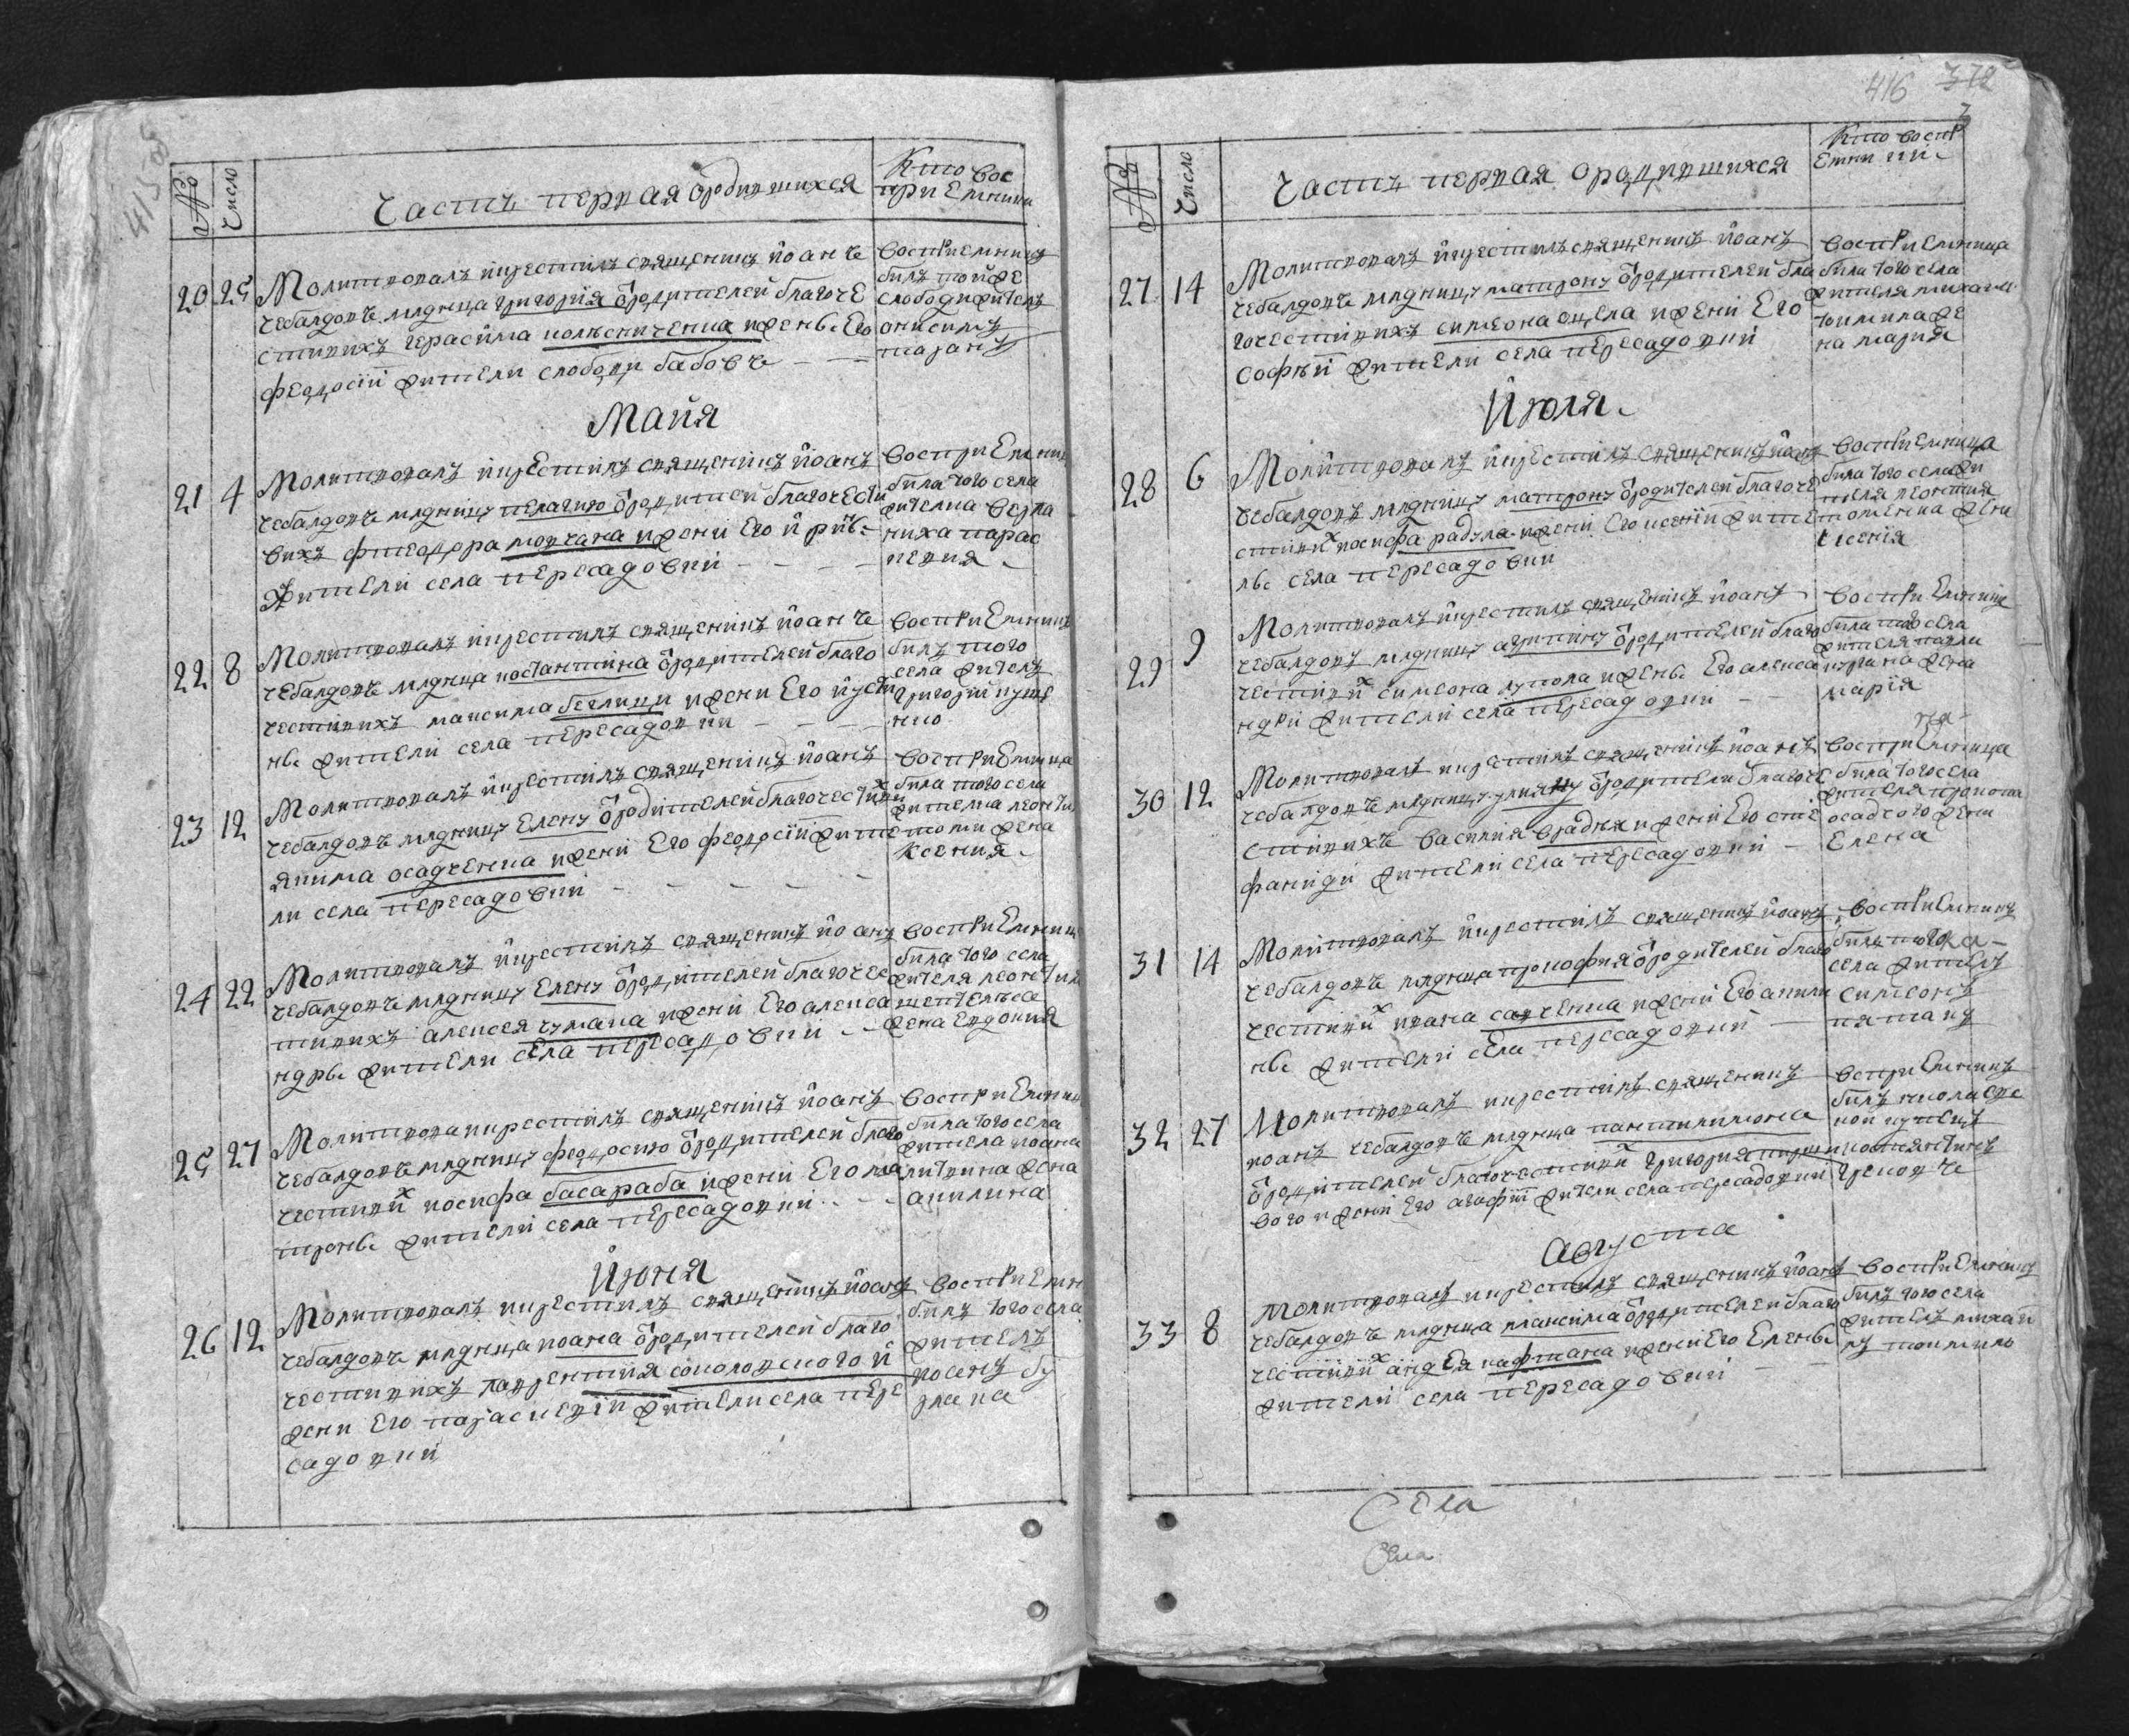 415 об
№
Число
Часть первая ородившихся
Кто вос
приемники
20 25
Молитвовалъ икрестилъ священикъ йоанъ че
чебалдовъ младенца григорія ӧродителей благоче
стивихъ герасима колесниченка ижены Его
федосій жители слободи бабовъ
воспиемникъ
билъ тойже
слободижитель
онисимъ
таранъ
Майя
21 4
Молитвовалъ икрестилъ священикъ йоанъ
чебалдовъ младницу пелагию ӧродителей благочести
вихъ фтеодора молчана ижени Его ирины
жители села пересадовки
восприемниц
била того села
жителка
ниха парас
певия
22 8
Молитвовалъ икрестилъ священикъ йоанъ
чебалдовъ младенца костантина ӧродителей благо
честивихъ максима беглици ижени Его иусти
ны жители села пересадовки
воспиемникъ
билъ того
села житель
григорій куще
нко
23 12
Молитвовалъ икрестилъ священикъ йоанъ
чебалдовъ младницу Елену ӧродителей благочестивих
якима осадченка ижени Его федосій жите
ли села пересадовки
воспиемница
била того села
жителка леонти
жена
ксения
24 22
Молитвовалъ икрестилъ священикъ йоанъ
чебалдовъ младницу Елену ӧродителей благочес
тивихъ алексея чумака ижени Его алекса
ндры жители села пересадовки
воспиемниц
била того села
жителя леонтия
жена Евдокия
25 27
Молитвова икрестилъ священикъ йоанъ
чебалдовъ младницу федосию ӧродителей благо
честивих иосифа басараба ижени Его ма
троны жители села пересадовки
воспиемниц
била того села
жителя иоана
литвина жена
акилина
Июня
26 12
Молитвовалъ икрестилъ священикъ йоанъ
чебалдовъ младенца иоана ӧродителей благо
честивихъ лаврентия соколовского и
жени Его параскевій жители села пере
садовки
воспиемн
билъ того села
житель
416 372
№
Число
Часть первая ородившихся
Кто восп
емники
27 14
Молитвовалъ икрестилъ священикъ йоанъ
чебалдовъ младницу матрону ӧродителей бла
гочестивихъ симеона ижени Его
софъи жители села пересадовки
воспиемница
била того села
жителя михаила
томила же
на мария
Июля
28 6
Молитвовалъ икрестилъ священикъ йоанъ
чебалдовъ младницу матрону ӧродителей благоче
стивих иосифа радула ижени Его ксеніи жите
лы села пересадовки
воспиемница
била того села жи
теля леонтия
жена
ксенія
29 9
Молитвовалъ икрестилъ священикъ йоанъ
чебалдовъ младницу ӧродителей благо
честивих симеона лупола ижены Его алекса
ндри жители села пересадовки
воспиемница
била того села
жителя павла
жена
марія
30 12
Молитвовалъ икрестилъ священикъ йоанъ
чебалдовъ младницу улияну ӧродителей благоче
стивихъ василия врадия ижени Его сте
фаниди жители села пересадовки
восприемница
била того села
жителя прокопа
осадчого жени
Елена
31 14
Молитвовалъ икрестилъ священикъ йоанъ
чебалдовъ младенца прокофия ӧродителей благо
честивих ивана савченка ижени Его акили
ны жители села пересадовки
воспиемникъ
билъ того
села житель
симеонъ
32 27
Молитвовалъ икрестилъ священикъ
иоанъ чебалдовъ младенца пантилимона
ӧродителей благочестивих григория
вого ижени Его агафій жители села пересадовки
восприемникъ
билъ николаевс
кой купецъ
костянтинъ
грековъ
Августа
33 8
Молитвовалъ икрестилъ священикъ йоанъ
чебалдовъ младенца максима ӧродителей благо
честивих андрея кафтана ижени Его Елены
жители села пересадовки
воспиемникъ
билъ того села
житель михаи
лъ томило
Села
Села